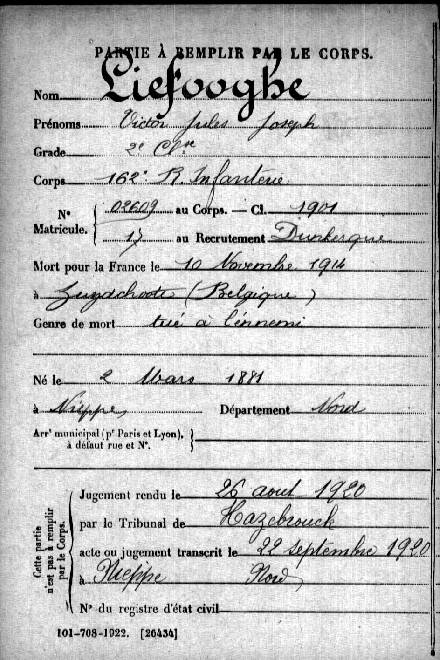 PARTIE À REMPLIR PAR LE CORPS.
Nom Liefooghe
Prénoms Victor Jules Joseph
Grade 2e Clre
Corps 162e R. Infanterie
N° Matricule. 02609 au Corps. — Cl. 1901
17 au Recrutement Dunkerque
Mort pour la France le 10 Novembre 1914
à Zuydchoote (Belgique)
Genre de mort tué à l'ennemi
Né le 2 Mars 1881
à Nieppe Département Nord
Arrt municipal (pr Paris et Lyon),
à défaut rue et N°.
Cette partie n'est pas à remplir par le Corps.
Jugement rendu le 26 aout 1920
par le Tribunal de Hazebrouck
acte ou jugement transcrit le 22 septembre 1920
à Nieppe Nord
N° du registre d'état civil
101-708-1922. [26434]